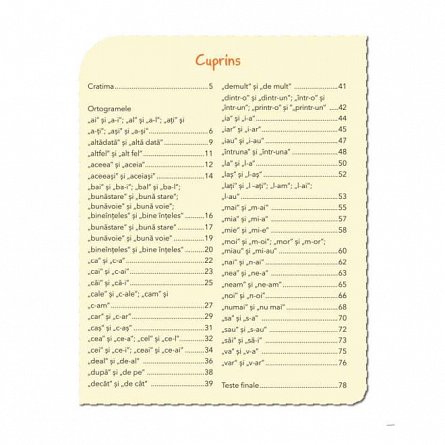 Cuprins
Cratima 5
Ortogramele
„ai” și „a-i”; „al” și „a-l”; „ați” și
„a-ți”; „ași” și „a-și” 6
„altădată” și „altă dată” 9
„altfel” și „alt fel” 11
„aceea” și „aceia” 12
„aceeași” și „aceiași” 14
„bai” și „ba-i”; „bal” și „ba-l”;
„bunăstare” și „bună stare”;
„bunăvoie” și „bună voie”;
„bineînțeles” și „bine înțeles” 16
„bunăstare” și „bună stare” 17
„bunăvoie” și „bună voie” 19
„bineînțeles” și „bine înțeles” 20
„ca” și „c-a” 22
„cai” și „c-ai” 23
„căi” și „că-i” 25
„cale” și „c-ale”; „cam” și
„c-am” 27
„car” și „c-ar” 29
„caș” și „c-aș” 31
„cea” și „ce-a”; „cel” și „ce-l” 32
„cei” și „ce-i”; „ceai” și „ce-ai” 34
„deal” și „de-al” 36
„după” și „de pe” 38
„decât” și „de cât” 39
„demult” și „de mult” 41
„dintr-o” și „dintr-un”; „într-o” și
„într-un”; „printr-o” și „printr-un” 42
„ia” și „i-a” 44
„iar” și „i-ar” 45
„iau” și „i-au” 47
„întruna” și „într-una” 48
„la” și „l-a” 50
„laș” și „l-aș” 52
„lați” și „l-ați”; „l-am”; „l-ai”;
„l-au” 53
„mai” și „m-ai” 55
„mia” și „mi-a” 57
„mie” și „mi-e” 58
„moi” și „m-oi”; „mor” și „m-or”;
„miau” și „mi-au” 60
„nai” și „n-ai” 62
„nea” și „ne-a” 63
„neam” și „ne-am” 65
„noi” și „n-oi” 66
„numai” și „nu mai” 68
„sa” și „s-a” 70
„sau” și „s-au” 72
„săi” și „să-i” 73
„va” și „v-a” 75
„var” și „v-ar” 76
Teste finale 78